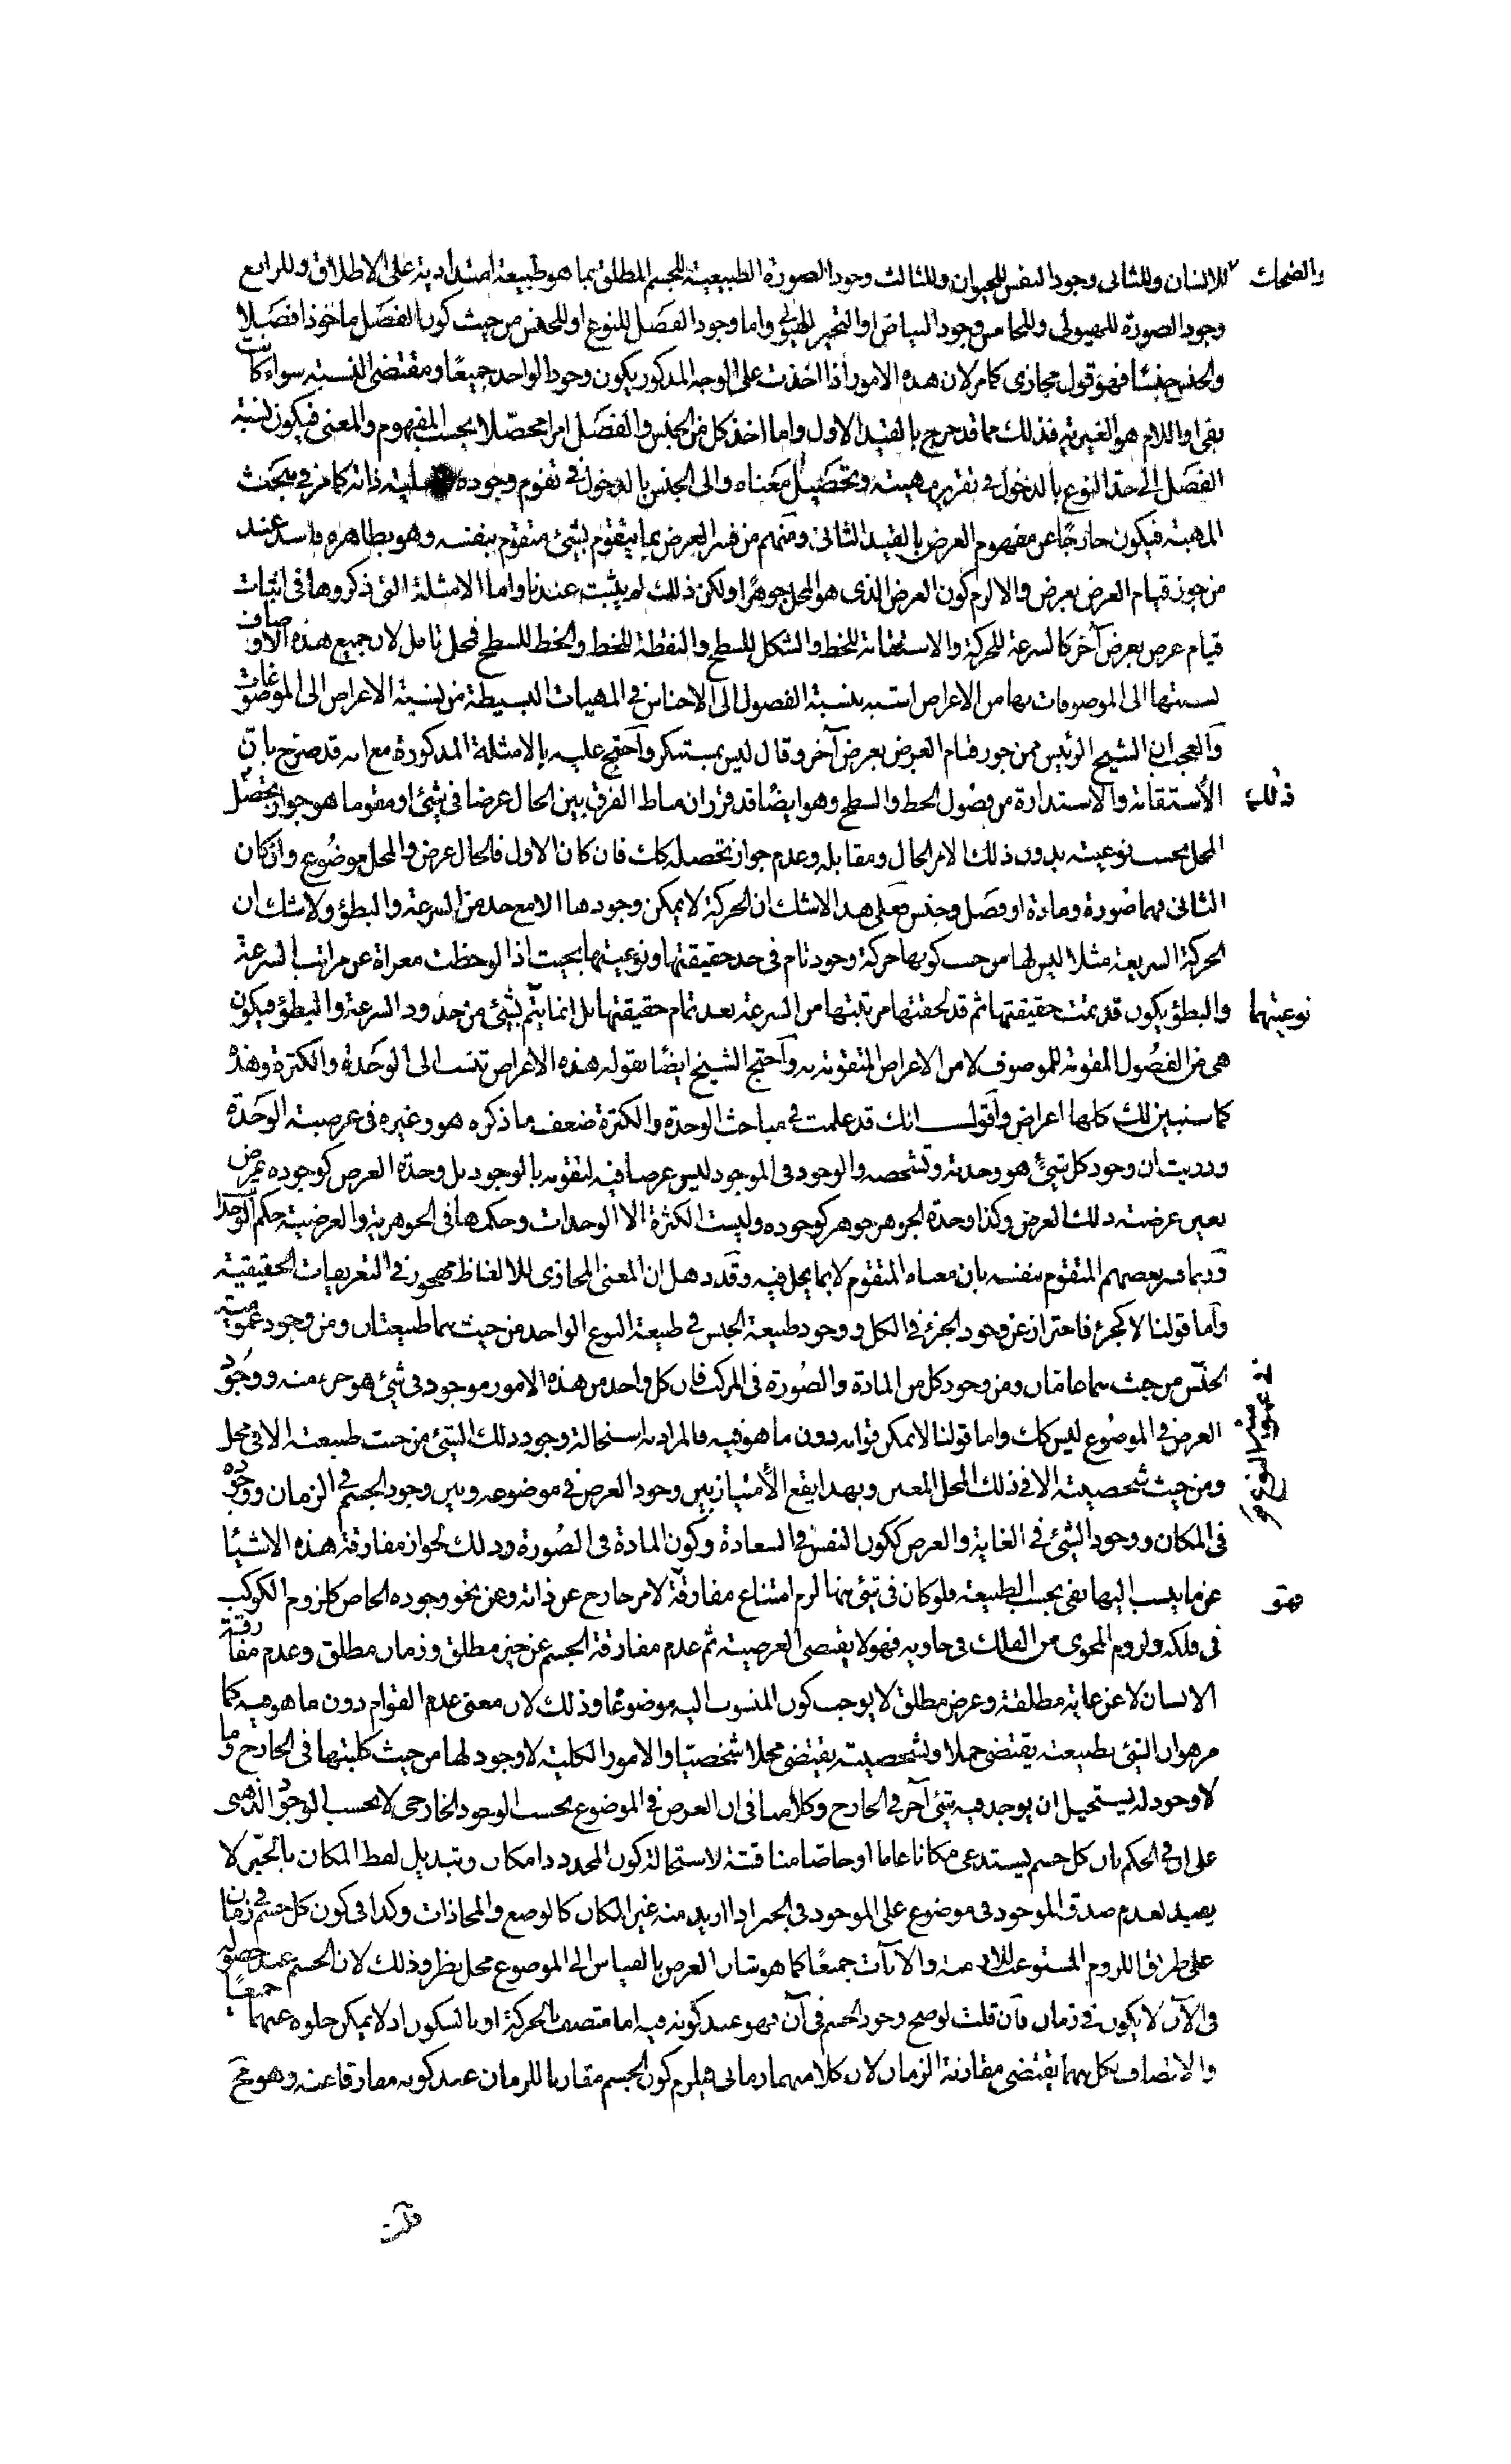 والضحاك للانسان وللثانى وجود النفس للحيوان وللثالث وجود الصورة الطبيعية للجسم المطلق بما هو طبيعة امتدادية على الاطلاق وللرابع
وجود الصورة للهيولى وللخامس وجود البياض او التحيز للهيولى واما وجود الفصل للنوع او للجنس من حيث كون الفصل ماخوذا فصلا
والجنس جنسا فهو قول مجازى كامر لان هذه الامور اذا اخذت على الوجه المذكور يكون وجود الواحد جميعًا ومقتضى النسبته سواء كانت
بفى او اللام هو الغيرية فذلك مما قد خرج بالقيد الاول واما اخذ كل من الجنس والفصل امرا محصّلا بحسب المفهوم والمعنى فيكون نسبة
الفصل الى حد النوع بالدخول فى تقرير مهيته وتحصيل معناه والى الجنس بالدخول فى تقوم وجوده ذاته كما مر فى مبحث
المهية فيكون خارجًا عن مفهوم العرض بالقيد الثانى ومنهم من فسر العرض بما يتقوم بشئ متقوم بنفسه وهو بظاهره فاسد عند
من جوز قيام العرض بعرض والا لزم كون العرض الذى هو المحل جوهرًا ولكن ذلك لم يثبت عندنا واما الامثلة التى ذكروها فى اثبات
قيام عرض بعرض آخر كالسرعة للحركة والاستقامة للخط والشكل للسطح والنقطة للخط والخط للسطح فمحل تامل لان جميع هذه الاوصاف
نسبتها الى الموصوفات بها من الاعراض اشبه بنسبة الفصول الى الاجناس فى المهيات البسيطة من نسبة الاعراض الى الموضوعات
والعجب ان الشيخ الرئيس ممن جوز قيام العرض بعرض آخر وقال ليس بمستنكر واحتج عليه بالامثلة المذكورة مع انه قد صرّح بان
الأستقامة والاستدارة من فصول الخط والسطح وهو ايضًا قد قرر ان مناط الفرق بين الحال عرضا فى شئ او مقوما هو جواز تحصّل
ذلك
المحل بحسب نوعيته بدون ذلك الامر الحال ومقابله وعدم جواز تحصله كك فان كان الاول فالحال عرض والمحل موضوع وان كان
الثانى فهما صورة ومادة او فصل وجنس فعلى هذا لا شك ان الحركة لا يمكن وجودها الا مع حد من السرعة والبطؤ ولا شك ان
الحركة السريعة مثلا ليس لها من حيث كونها حركة وجود تام فى حد حقيقتها ونوعيتها بحيث اذا لوحظت معراة عن مراتب السرعة
نوعيتها
والبطؤ يكون قد تمت حقيقتها ثم قد لحقتها مرتبتها من السرعة بعد تمام حقيقتها بل انما يتم بشئ من حدود السرعة والبطؤ فيكون
هى من الفصول المقومة للموصوف لا من الاعراض المتقومة به واحتج الشيخ ايضًا بقوله هذه الاعراض تنسب الى الوحدة والكثرة وهذه
كما سنبين لك كلها اعراض واقول انك قد علمت فى مباحث الوحدة والكثرة ضعف ما ذكره هو وغيره فى عرضية الوحدة
ودريت ان وجود كل شئ هو وحدته وتشخصه والوجود فى الموجود ليس عرضا فيه لتقومه بالوجود بل وحدة العرض كوجوده عرض
بعين عرضية ذلك العرض وكذا وحدة الجوهر جوهر كوجوده وليست الكثرة الا الوحدات وحكمها فى الجوهرية والعرضية حكم الوحدات
وربما فسر بعضهم المتقوم بنفسه بان معناه المتقوم لا بما يحل فيه وقد ذهل ان المعنى المجازى للالفاظ مهجور فى التعريفات الحقيقية
واما قولنا لا كجزء فاحتراز عن وجود الجزء فى الكل ووجود طبيعة الجنس فى طبيعة النوع الواحد من حيث هما طبيعتان ومن وجود عمومية
الجنس من حيث هما عامّان ومن وجود كل من المادة والصورة فى المركب فان كل واحد من هذه الامور موجود فى شئ هو جزء منه ووجود
العرض فى الموضوع ليس كك واما قولنا لا يمكن قوامه دون ما هو فيه فالمراد به استحالة وجود ذلك الشئ من حيث طبيعته الا فى محل
ومن حيث شخصيته الا فى ذلك المحل المعين وبهذا يقع الأمتياز بين وجود العرض فى موضوعه وبين وجود الجسم فى الزمان ووجوده
فى المكان ووجود الشئ فى الغاية والعرض ككون النفس فى السعادة وكون المادة فى الصورة وذلك لجواز مفارقة هذه الاشياء
عن ما ينسب اليها بفى بحسب الطبيعة فلو كان فى شئ منها لزم امتناع مفارقة لامر خارج عن ذاته وعن نحو وجوده الخاص كلزوم الكوكب
فى فلكه ولزوم المحوى من الفلك فى حاويه فهو لا يقتضى العرضية ثم عدم مفارقة الجسم عن حيز مطلق وزمان مطلق وعدم مفارقة
الانسان لا عن غاية مطلقة وعرض مطلق لا يوجب كون المنسوب اليه موضوعًا وذلك لان معنى عدم القوام دون ما هو فيه كما
مر هو ان الشئ بطبيعته يقتضى محلا وبشخصيته يقتضى محلا شخصيّا والامور الكلية لا وجود لها من حيث كليتها فى الخارج وما
لا وجود له يستحيل ان يوجد فيه شئ آخر فى الخارج وكلامنا فى ان العرض فى الموضوع بحسب الوجود الخارجى لا بحسب الوجود الذهنى
على ان فى الحكم بان كل جسم يستدعى مكانا عاما او خاصا مناقشة لاستحالة كون المحدد ذا مكان وتبديل لفظ المكان بالتحيّز لا
يفيد لعدم صدق الموجود فى موضوع على الموجود فى الحيز اذا اريد منه غير المكان كالوضع والمحاذات وكذا فى كون كل جسم فى زمان
على طريق اللزوم المستوعب للازمنة والآنات جميعًا كما هو شان العرض بالقياس الى الموضوع محل نظر وذلك لان الجسم عند حصوله
فى الآن لا يكون فى زمان فان قلت لو صح وجود الجسم فى آن فهو عند كونه فيه اما متصف بالحركة او بالسكون اذ لا يمكن خلوه عنهما جميعًا
والاتصاف بكل منهما يقتضى مقارنة الزمان لان كلا منهما زمانى فيلزم كون الجسم مقارنا للزمان عند كونه مفارقا عنه وهو مح
قلت